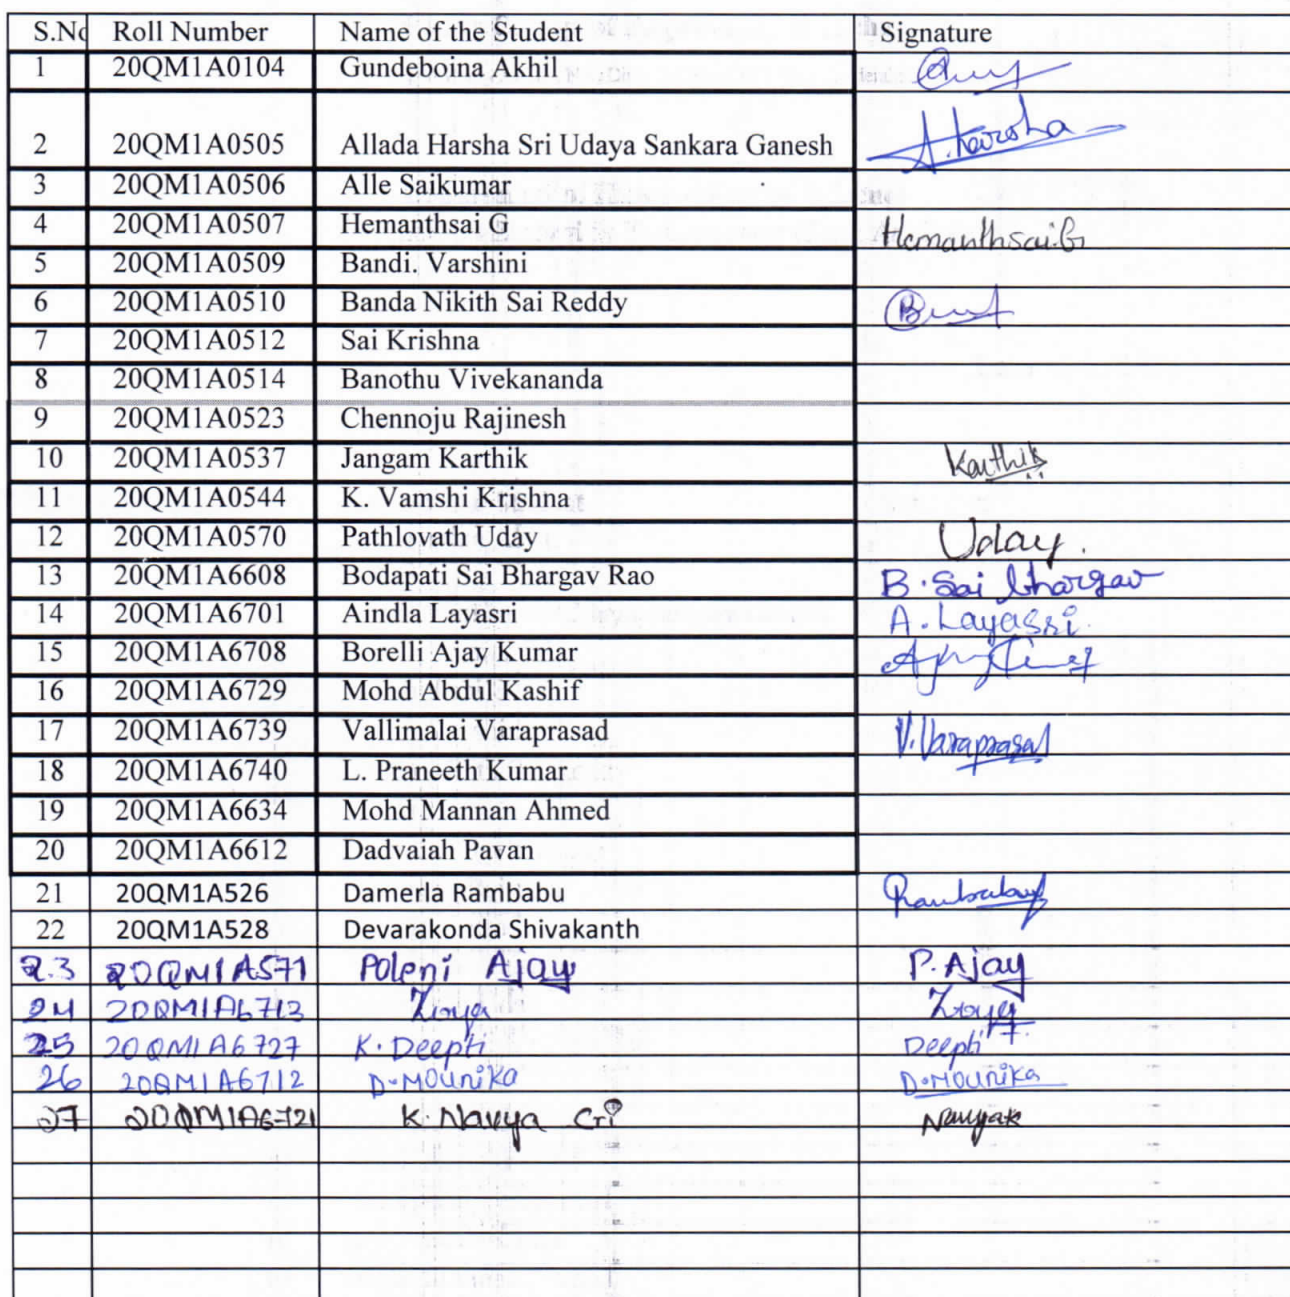 S.No Roll Number Name of the Student Signature
1 20QM1A0104 Gundeboina Akhil
2 20QM1A0505 Allada Harsha Sri Udaya Sankara Ganesh A.Harsha
3 20QM1A0506 Alle Saikumar
4 20QM1A0507 Hemanthsai G Hemanthsai.G
5 20QM1A0509 Bandi. Varshini
6 20QM1A0510 Banda Nikith Sai Reddy
7 20QM1A0512 Sai Krishna
8 20QM1A0514 Banothu Vivekananda
9 20QM1A0523 Chennoju Rajinesh
10 20QM1A0537 Jangam Karthik Karthik
11 20QM1A0544 K. Vamshi Krishna
12 20QM1A0570 Pathlovath Uday Uday.
13 20QM1A6608 Bodapati Sai Bhargav Rao B.Sai bhargav
14 20QM1A6701 Aindla Layasri A.Layasri
15 20QM1A6708 Borelli Ajay Kumar
16 20QM1A6729 Mohd Abdul Kashif
17 20QM1A6739 Vallimalai Varaprasad V.Varaprasad
18 20QM1A6740 L. Praneeth Kumar
19 20QM1A6634 Mohd Mannan Ahmed
20 20QM1A6612 Dadvaiah Pavan
21 20QM1A526 Damerla Rambabu Rambabu
22 20QM1A528 Devarakonda Shivakanth
23 20QM1A571 Poleni Ajay P.Ajay
24 20QM1A6713
25 20QM1A6727 K.Deepti Deepti
26 20QM1A6712 D.Mounika D.Mounika
27 20QM1A6721 K.Navya Gri Navyak